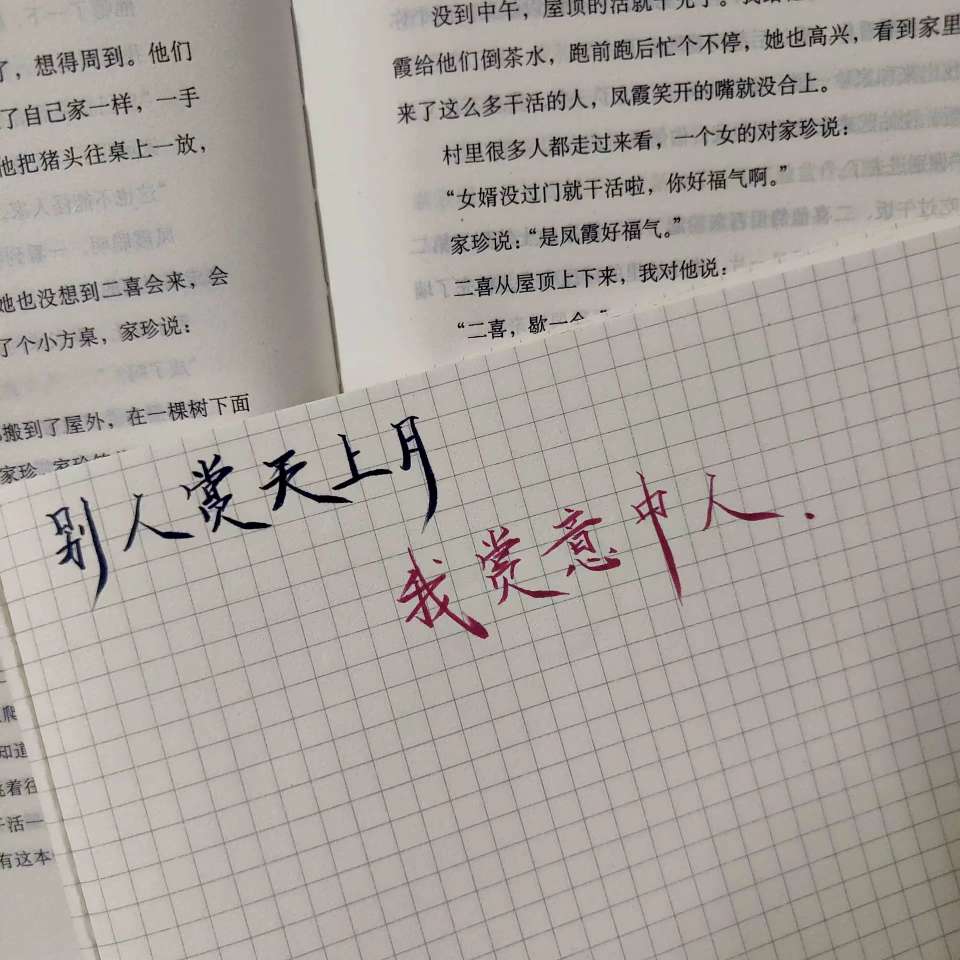 了，想得周到。他们
了自己家一样，一手
他把猪头往桌上一放，
她也没想到二喜会来，会
了个小方桌，家珍说：
搬到了屋外，在一棵树下面
没到中午，屋顶的活就干完了。我
霞给他们倒茶水，跑前跑后忙个不停，她也高兴，看到家里
来了这么多干活的人，凤霞笑开的嘴就没合上。
村里很多人都走过来看，一个女的对家珍说：
“女婿没过门就干活啦，你好福气啊。”
家珍说：“是凤霞好福气。”
二喜从屋顶上下来，我对他说：
“二喜，歇一会
别人赏天上月
我赏意中人.
知道
着往
活一
有这本